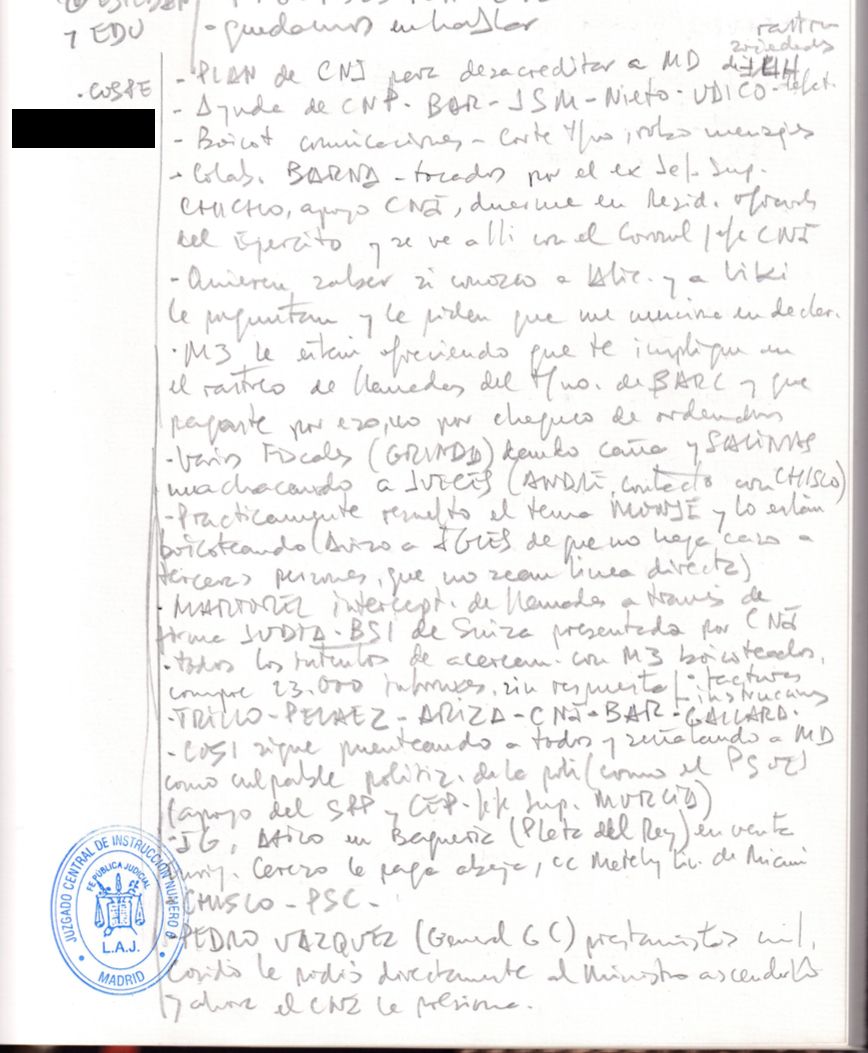 7 EDU - quedamos en hablar
rastreo
sociedades
·COSPE - PLAN de CNI para desacreditar a MD de JLH
- Ayuda de CNP· BAR - JSM - Nieto - UDICO - telef.
- Boicot comunicaciones - Corte tfno, robo mensajes
- Colab. BARNA - tocados por el ex Jef. Sup.
CHICHO, apoyo CNI, duerme en Resid. oficiales
del Ejercito y se ve alli con el Coronel jefe CNI
- Quieren saber si conozco a Alic. y a Viki
le preguntan y le piden que me mencione en declar.
·M3 le están ofreciendo que te implique en
el rastreo de llamadas del tfno. de BARC y que
pagaste por eso, no por chequeo de ordenadores
- Varios Fiscales (GRINDA) dando caña y SALINAS
machacando a JUECES (ANDREU, contacto con CHISCO)
- Practicamente resuelto el tema MONJE y lo están
boicoteando (Aviso a IGLES de que no haga caso a
terceras personas, que no sean linea directa)
· MARTOREL intercept. de llamadas a través de
firma JUDIA - BSI de Suiza presentada por CNI
· todos los intentos de acercam. con M3 boicoteados,
compre 23.000 informes, sin respuesta - facturas
- instrucciones
- TRILLO - PELAEZ - ARIZA - CNI - BAR - GALLARD.
- COSI sigue puenteando a todos y señalando a MD
como culpable politiz. de la poli (como el PSOE)
(apoyo del SPP y CEP - Jefe Sup. MURCIA)
- IG, Atico en Baqueira (Pleta del Rey) en venta
Cerezo le paga abajo, cc Metely Inv. de Miami
- CHISCO - PSC -
- PEDRO VAZQUEZ (General GC) prestamistas
Cosidó le pedía directamente al Ministro ascenderlo
y ahora el CNI le presiona.
JUZGADO CENTRAL DE INSTRUCCIÓN NUMERO 6
FE PÚBLICA JUDICIAL
L.A.J.
MADRID